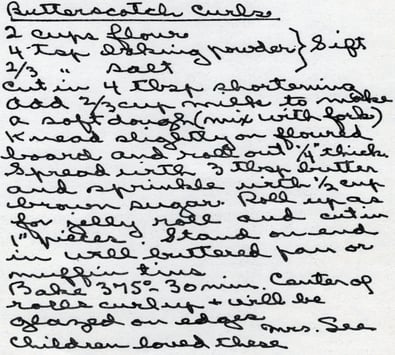 Butterscotch Curls
2 cups flour
4 tsp baking powder } Sift
2/3 " salt
cut in 4 tbsp shortening
add 2/3 cup milk to make
a soft dough (mix with fork)
Knead slightly on floured
board and roll out 1/4" thick.
Spread with 3 tbsp butter
and sprinkle with 1/2 cup
brown sugar. Roll up as
for jelly roll and cut in
1" pieces. Stand on end
in well buttered pan or
muffin tins
Bake 375° 30 min. Center of
rolls curl up + will be
glazed on edges
Mrs. See
Children loved these